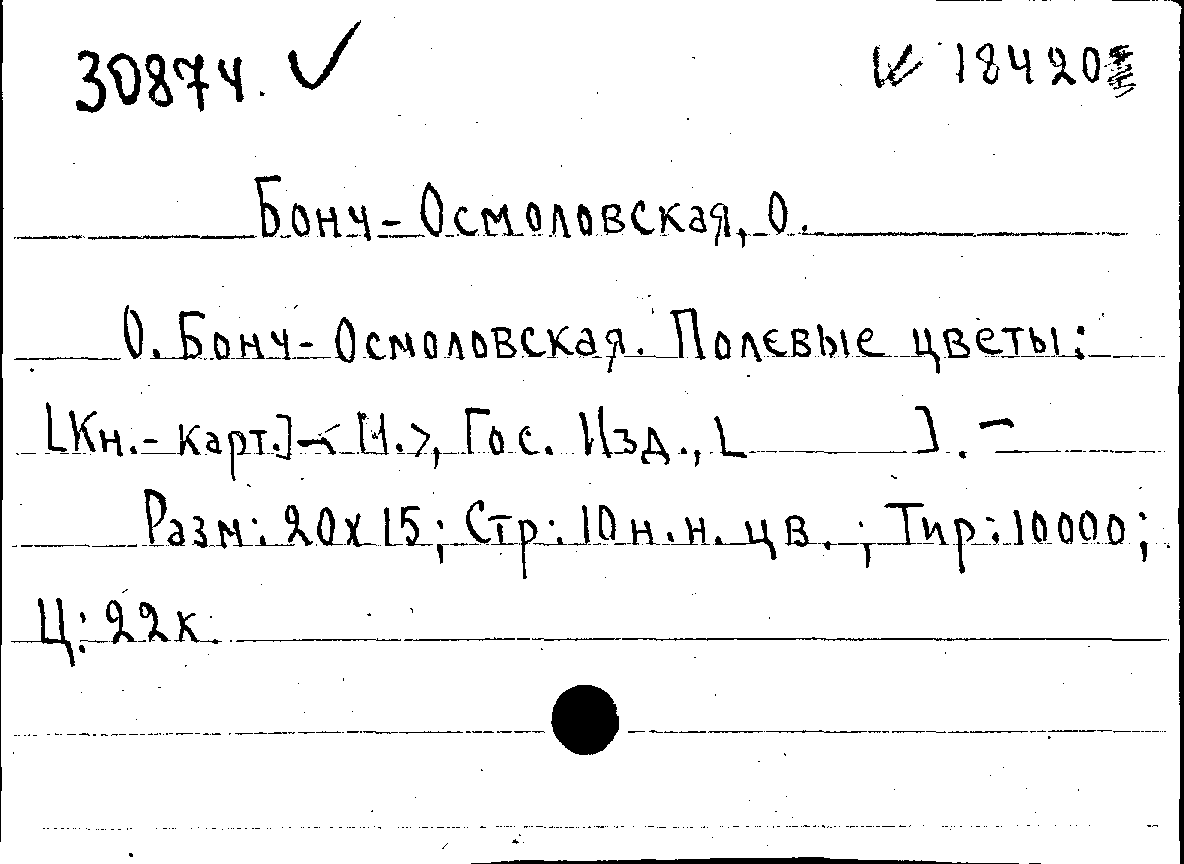 30874. ✓ 18420
Бонч-Осмоловская, О.
О. Бонч-Осмоловская. Полевые цветы:
[Кн.-карт.]-<М.>, Гос. Изд., [ ]. –
Разм: 20х15; Стр: 10 н.н. цв. ; Тир: 10000;
Ц: 22к.